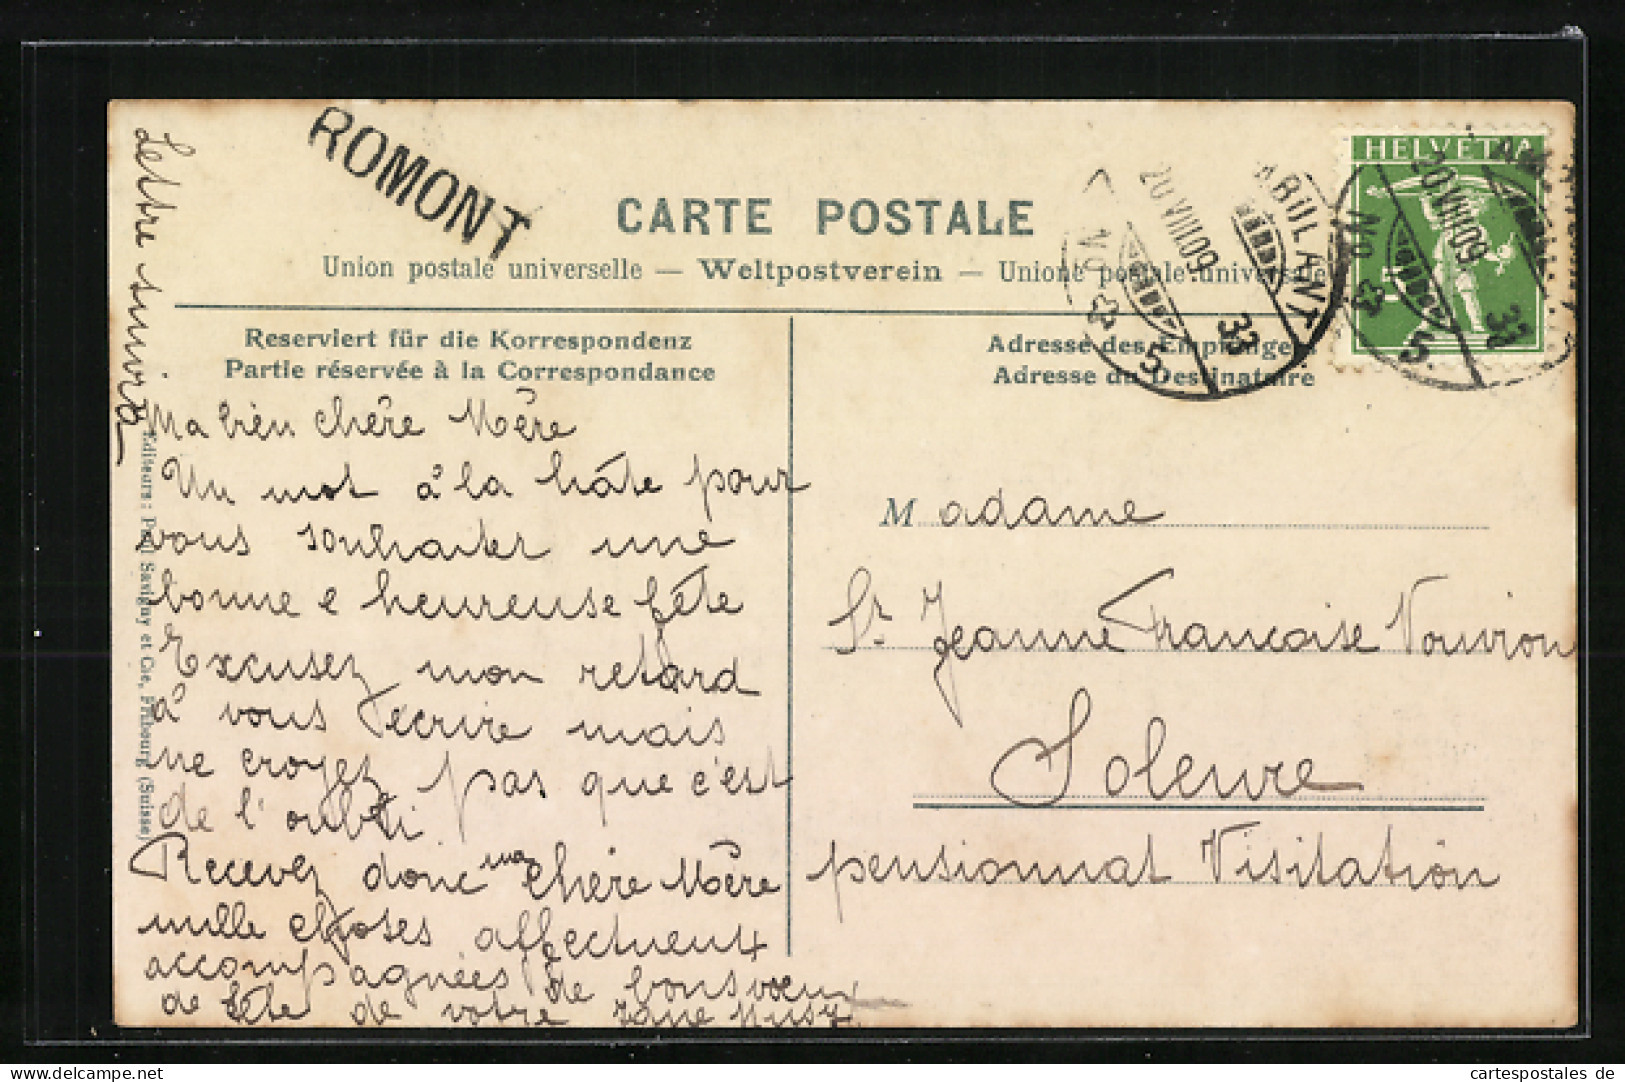 ROMONT
CARTE POSTALE
Union postale universelle — Weltpostverein — Unione postale universale
HELVETIA
AMBULANT
20 VIII 09
33
5
20 VIII 09
33
5
Lettre suivra
Reserviert für die Korrespondenz
Partie réservée à la Correspondance
Adresse des Empfängers
Adresse du Destinataire
Ma bien chère Mère
Un mot à la hâte pour
vous souhaiter une
bonne e heureuse fête
Excusez mon retard
à vous écrire mais
ne croyez pas que c'est
de l'oubli
Recevez donc ma chère Mère
mille choses affectueux
accompagnées de bons voeux
de fête de votre
Madame
Sr Jeanne Francoise
Soleure
pensionnat Visitation
Editeurs: Paul Savigny et Cie, Fribourg (Suisse)
cartespostales de